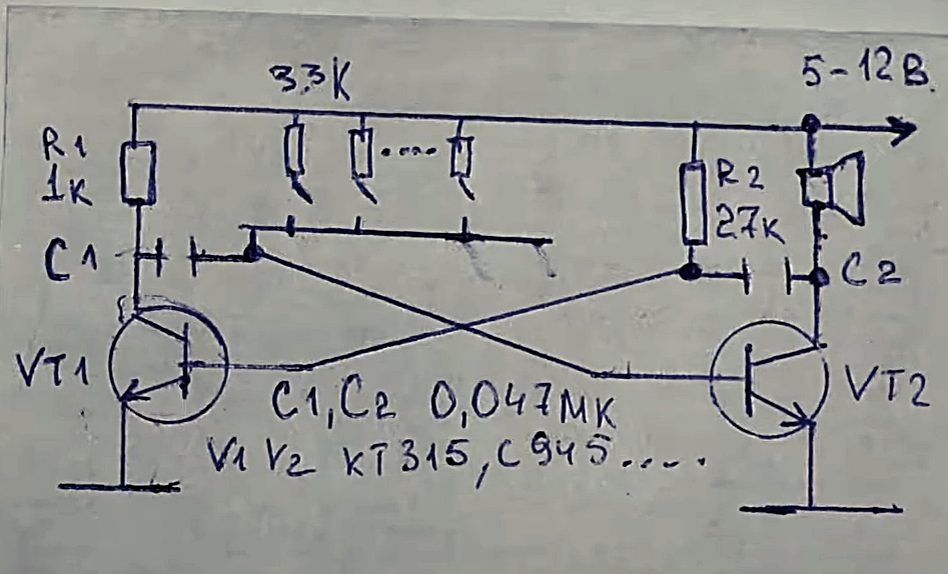 33K
5-12В.
R1
1к
R2
27к
C1
C2
VT1
VT2
C1, C2 0,047МК
V1 V2 КТ315, C945.....